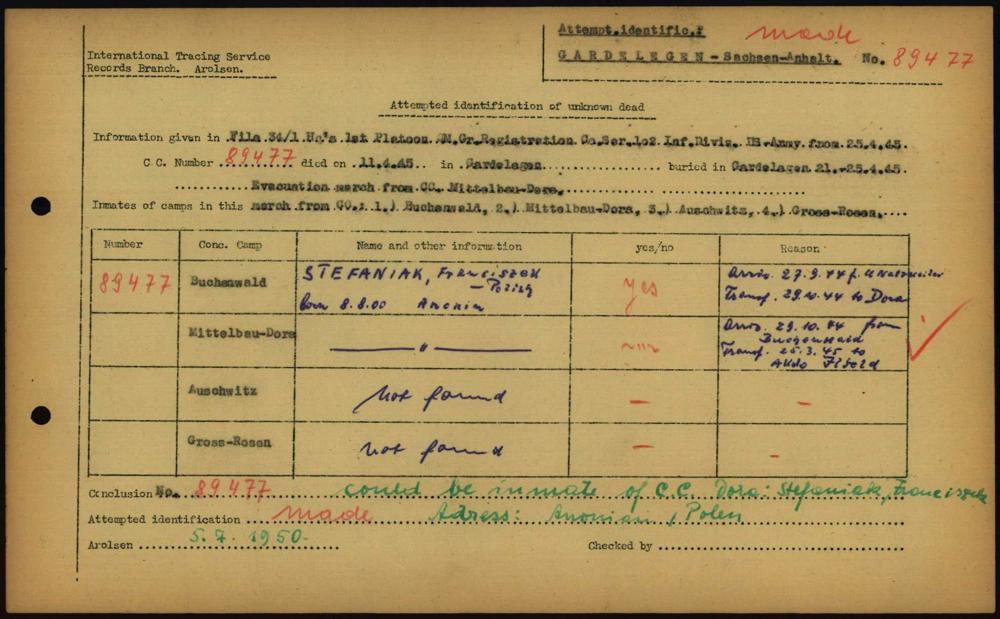 Attempt.identific.F made
International Tracing Service
Records Branch. Arolsen.
GARDELEGEN - Sachsen-Anhalt. No. 89477
Attempted identification of unknown dead
Information given in File 34/1 Hq's 1st Platoon QM.Gr.Registration Co.Ser.102 Inf.Divis. US-Army from 25.4.45.
C C. Number 89477 died on 11.4.45 in Gardelegen buried in Gardelegen 21.-25.4.45.
Evacuation march from CC. Mittelbau-Dora.
Inmates of camps in this march from CC.: 1.) Buchenwald, 2.) Mittelbau-Dora, 3.) Auschwitz, 4.) Gross-Rosen.
Number Conc. Camp Name and other information yes/no Reason
89477 Buchenwald STEFANIAK, Franciszek - Polish born 8.8.00 Anonin yes Arriv. 27.9.44 f. Natzweiler Transf. 29.10.44 to Dora
Mittelbau-Dora — " — —"— Arriv. 29.10.44 from Buchenwald Transf. 25.3.45 to Akdo
Auschwitz not found — —
Gross-Rosen not found — —
Conclusion No. 89477 could be inmate of C.C. Dora: Stefaniak, Franciszek
Attempted identification made Adress: Anonian, Polen
Arolsen 5.7.1950. Checked by